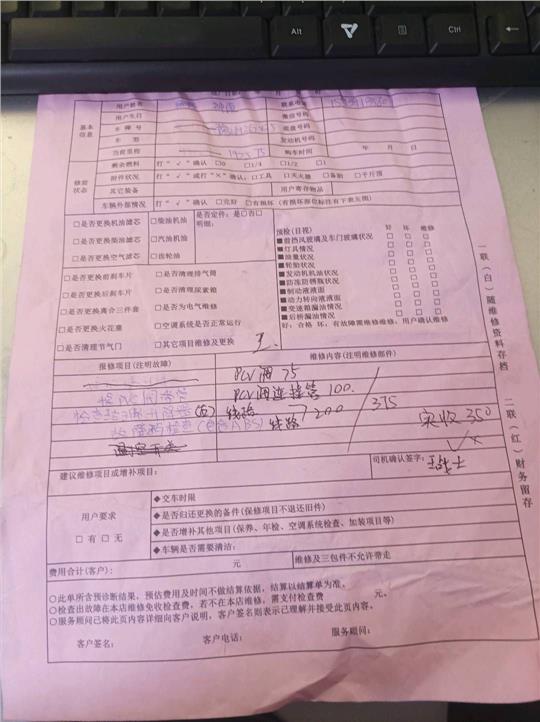 Alt
Ctrl
基本信息
用户姓名
联系电话
用户生日
微信号码
车牌号
底盘号码
车型
发动机号码
当前里程
购车时间 年 月 日
修前状态
剩余燃料 打“√”确认 □0 □1/4 □1/2 □1
附件状况 打“√”或打“×”确认，□工具 □灭火器 □备胎 □千斤顶
其它装备 用户寄存物品
车辆外部情况 打“√”确认 □完好 □有损坏（有损坏部位标注有下意见图）
□是否更换机油滤芯 □柴油机油 是否定件：是□否□
□是否更换柴油滤芯 □汽油机油 明细：
□是否更换空气滤芯 □齿轮油
□是否更换前刹车片 □是否清理排气筒
□是否更换后刹车片 □是否清理尿素箱
□是否更换离合三件套 □是否为电气维修
□是否更换火花塞 □空调系统是否正常运行
□是否清理节气门 □其它项目维修及更换
预检（目视） 好 坏 维修
■前挡风玻璃及车门玻璃状况 □ □ □
■灯具情况 □ □ □
■油量状况 □ □ □
■轮胎状况 □ □ □
■发动机机油状况 □ □ □
■防冻防锈瓶状况 □ □ □
■制动液液面 □ □ □
■动力转向液液面 □ □ □
■变速箱漏油情况 □ □ □
■后桥漏油情况 □ □ □
好：合格 坏：有故障需维修维修，用户确认维修
报修项目（注明故障） 维修内容（注明维修部件）
PCV阀 75
PCV阀连接管 100.
线路 200 375
(包含ABS) 线路
实收350
建议维修项目或增补项目：
司机确认签字：
用户要求
□有 □无
◆交车时限
◆是否归还更换的备件（保修项目不退还旧件）
◆是否增补其他项目（保养、年检、空调系统检查、加装项目等）
◆车辆是否需要清洁：
费用合计（客户）： 元 维修及三包件不允许带走
○此单所含预诊断结果，预估费用及时间不做结算依据，结算以结算单为准。
○检查出故障在本店维修免收检查费，若不在本店维修，需支付检查费 元。
○服务顾问已将此页内容详细向客户说明，客户签名则表示已理解并接受此页内容。
客户签名： 客户电话： 服务顾问：
一联（白）随维修资料存档
二联（红）财务留存